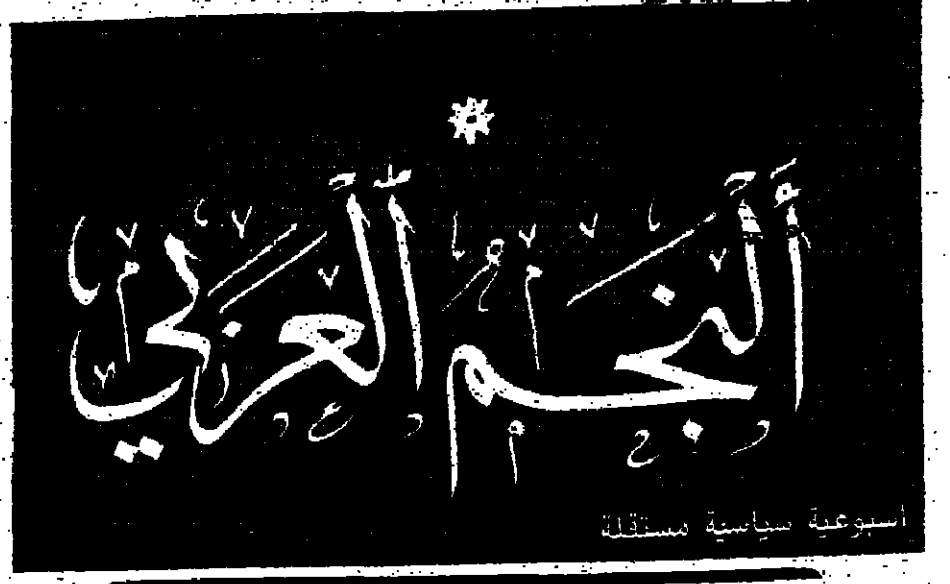 النجم العربي
اسبوعية سياسية مستقلة